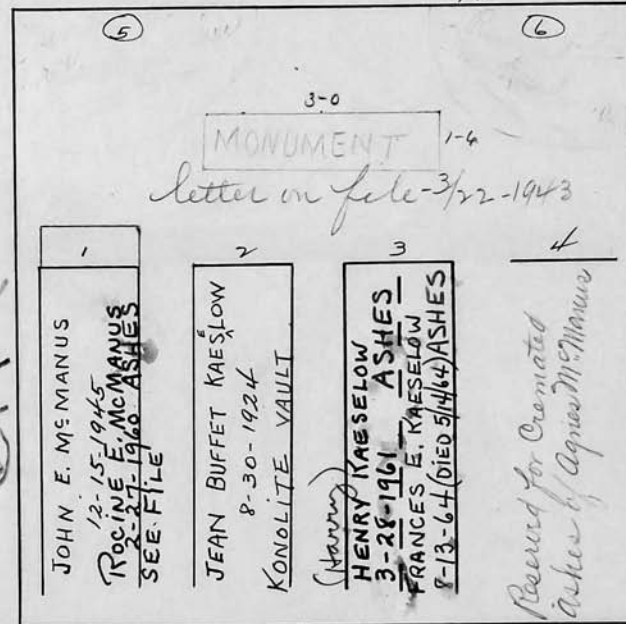 5
6
3-0
MONUMENT
1-6
letter on file-3/22-1943
1
JOHN E. McMANUS
12-15-1945
ROCINE E. McMANUS
2-27-1960 ASHES
SEE FILE
2
JEAN BUFFET KAESELOW
8-30-1924
KONOLITE VAULT
3
(Harry)
HENRY KAESELOW
3-28-1961 ASHES
FRANCES E. KAESELOW
8-13-64 (DIED 5/14/64) ASHES
4
Reserved for Cremated
ashes of Agnes McManus